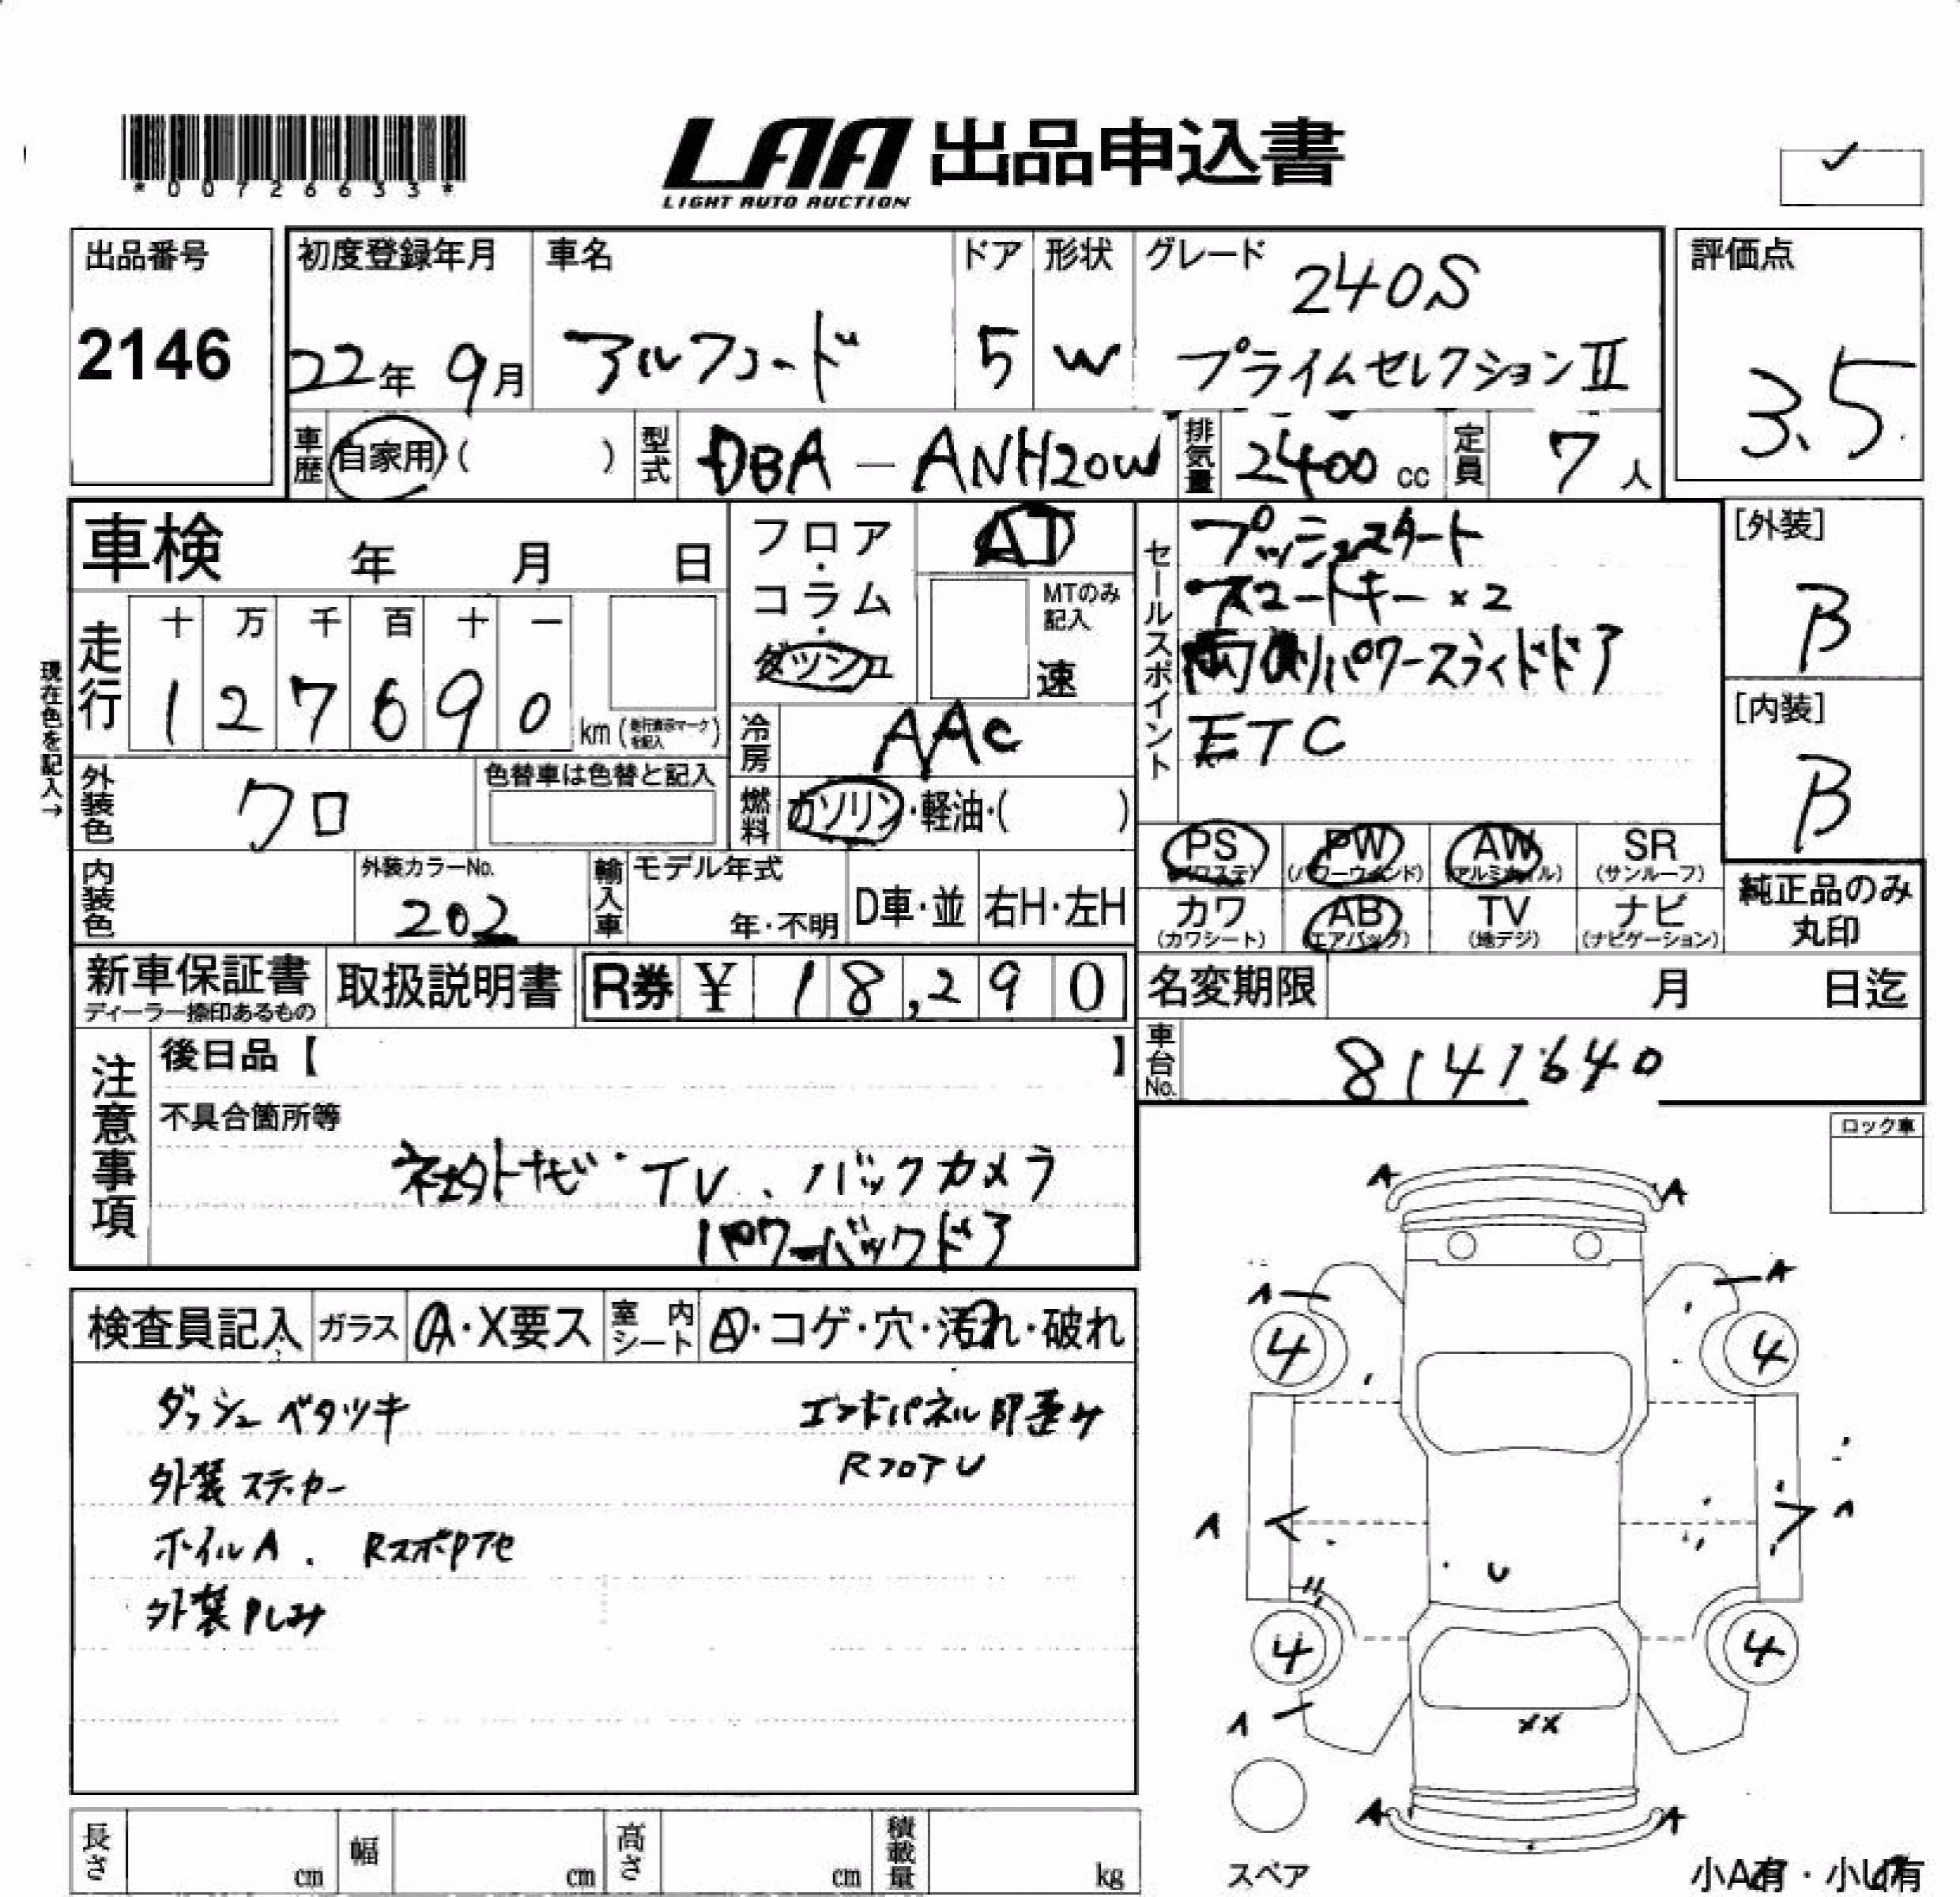 *00726633*
LAA 出品申込書
LIGHT AUTO AUCTION
出品番号
2146
初度登録年月
22年 9月
車名
アルファード
ドア
5
形状
W
グレード
240S
プライムセレクションⅡ
評価点
3.5
車歴 自家用 ( )
型式 DBA - ANH20W
排気量 2400 cc
定員 7 人
車検 年 月 日
現在色を記入→
走行
十 万 千 百 十 一
1 2 7 6 9 0 km (走行表示マークを記入)
フロア・コラム・ダッシュ
AT
MTのみ記入
速
冷房 AAC
燃料 ガソリン・軽油・( )
外装色 クロ
色替車は色替と記入
内装色
外装カラーNo.
202
輸入車
モデル年式
年・不明
D車・並
右H・左H
セールスポイント
プッシュスタート
スマートキー×2
両側パワースライドドア
ETC
[外装]
B
[内装]
B
PS (パワステ)
PW (パワーウインド)
AW (アルミホイル)
SR (サンルーフ)
カワ (カワシート)
AB (エアバック)
TV (地デジ)
ナビ (ナビゲーション)
純正品のみ
丸印
新車保証書
ディーラー捺印あるもの
取扱説明書
R券 ¥ 18,290
名変期限 月 日迄
車台No. 8141640
注意事項
後日品【 】
不具合箇所等
社外ナビ・TV、バックカメラ
パワーバックドア
ロック車
検査員記入
ガラス
A・X要ス
室内シート
A・コゲ・穴・汚れ・破れ
ダッシュベタツキ
エンドパネル
外装ステッカー
RフロアU
ホイルA.
外装
A A
A A
4 4
A A
U
4 4
A
XX
A A
スペア
小A有・小U有
長さ cm
幅 cm
高さ cm
積載量 kg